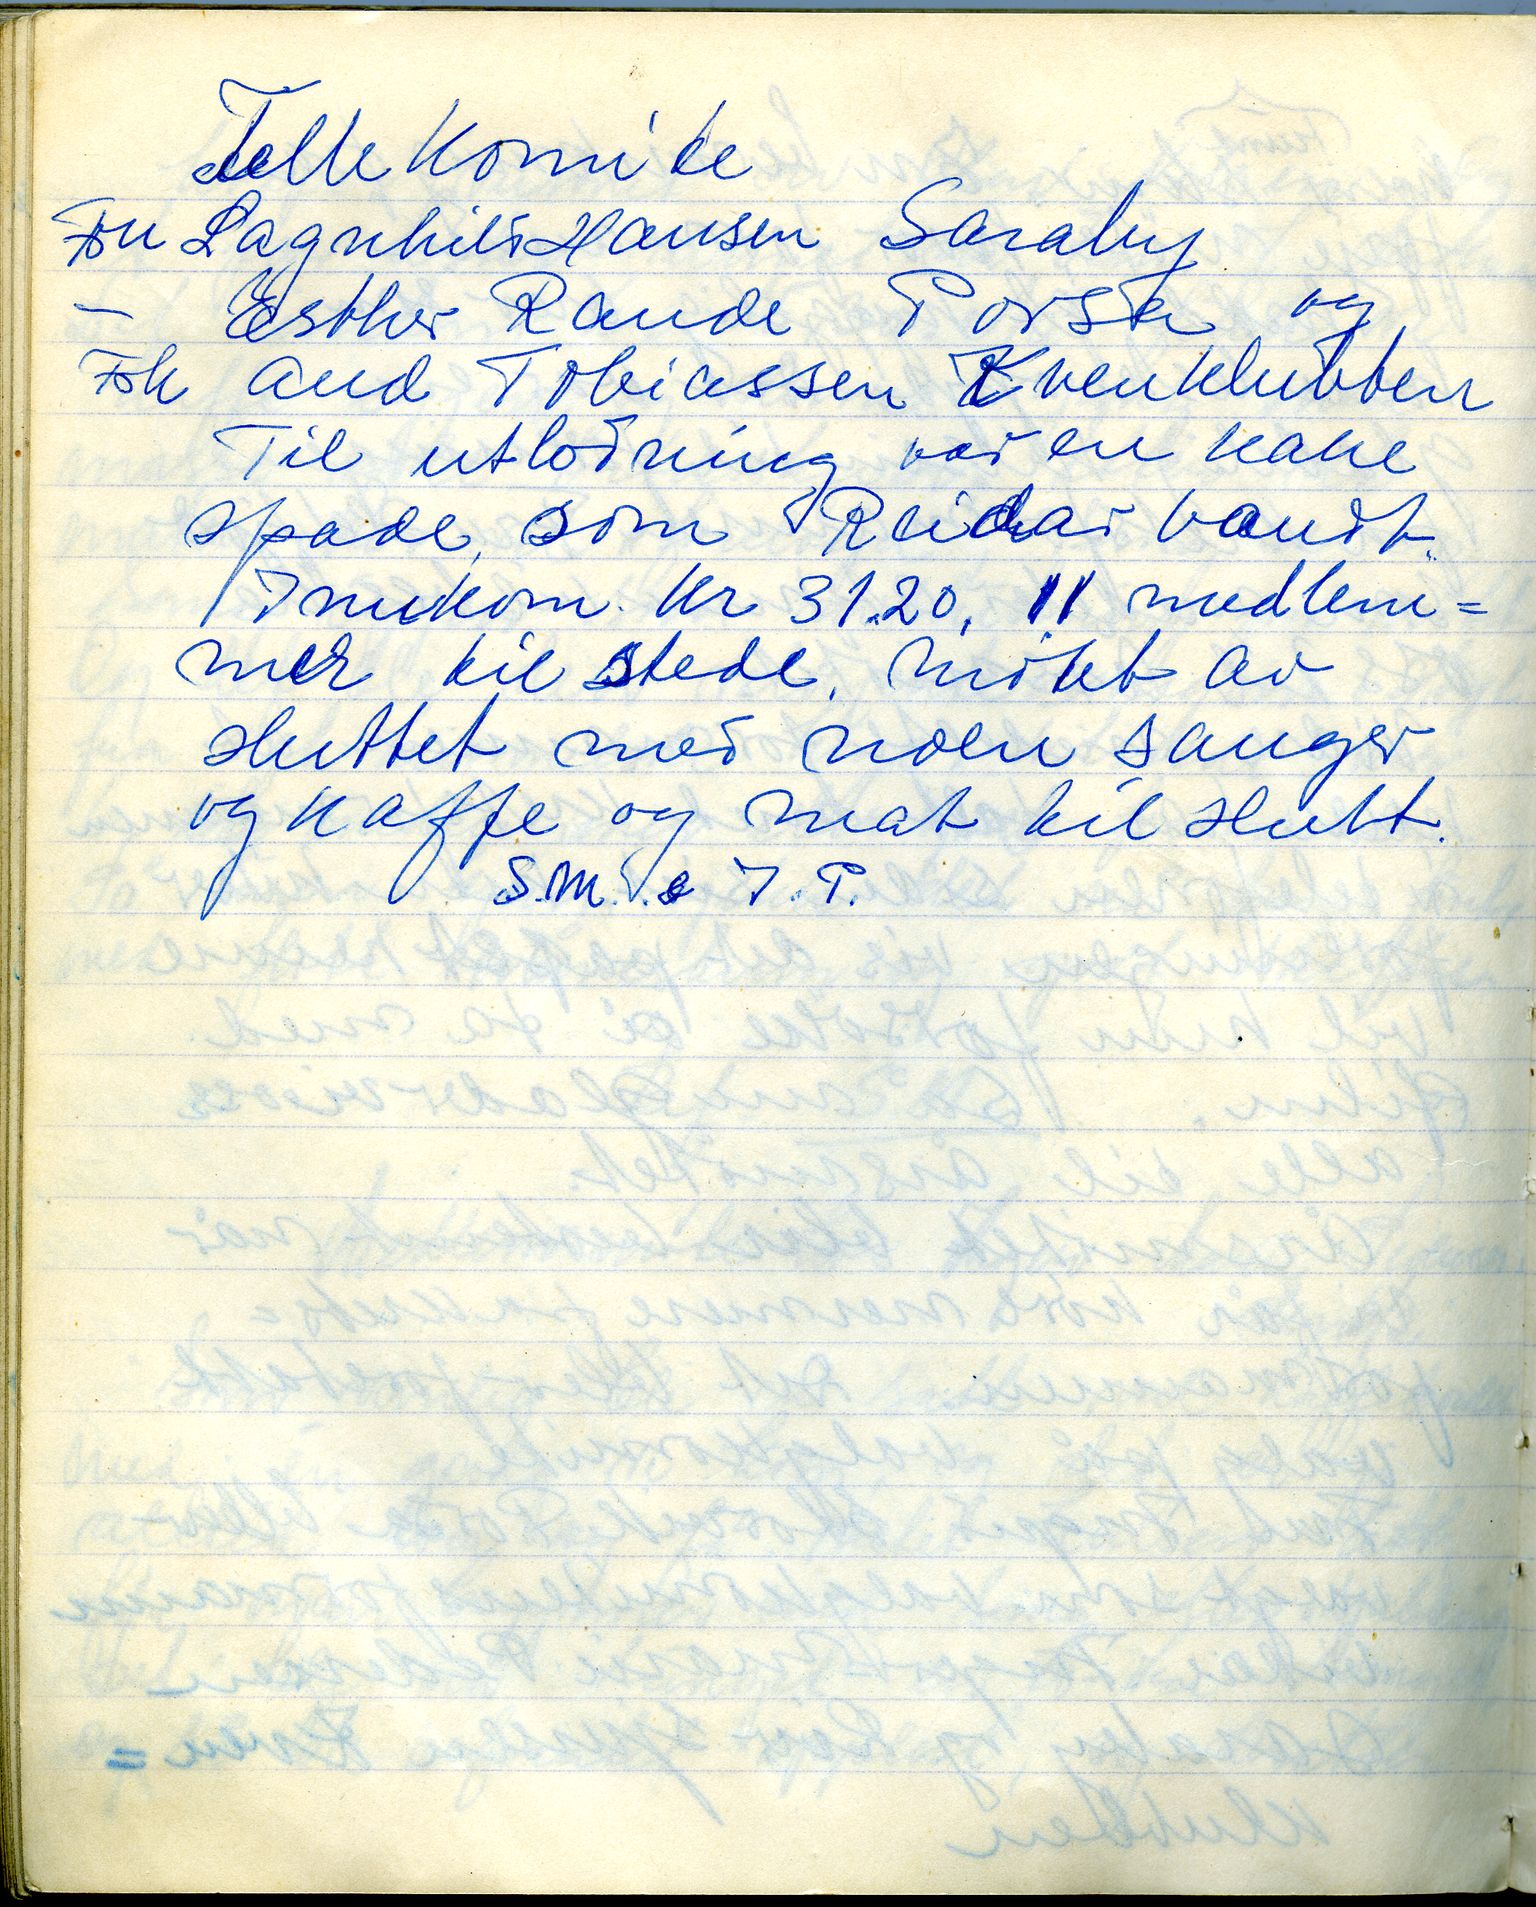 Telle Komite
Fru Ragnhild Hansen Saraby
- Esther Rande Porsa og
Frk Aud Tobiassen Kvenklubben
Til utlodning var en kake
spade, som Reidar vandt.
Innkom. kr 31.20. 11 medlem=
mer til stede, møtet av
sluttet med noen sanger
og kaffe og mat til slutt.
S.M. s I. P.